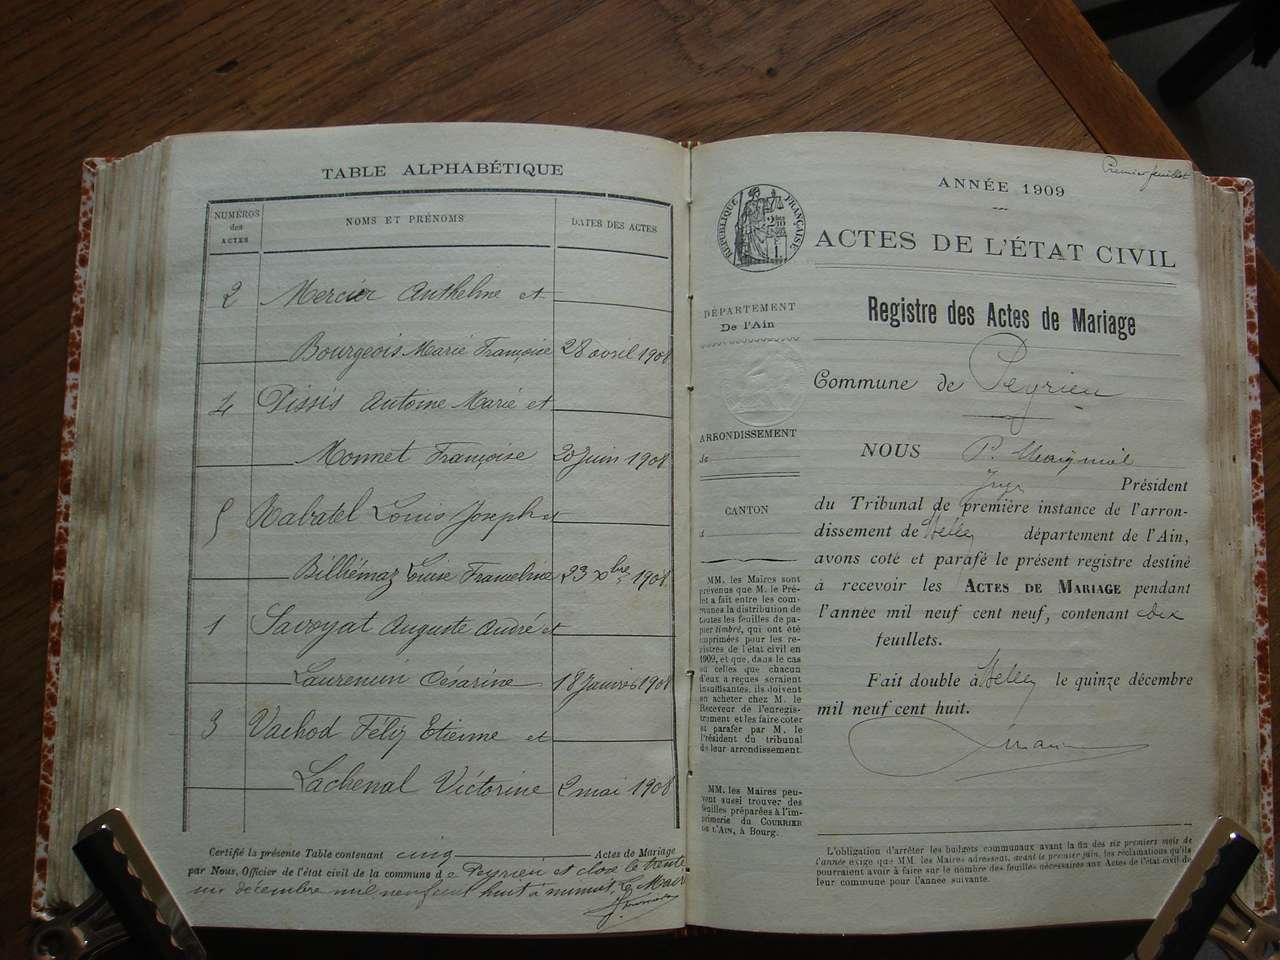 TABLE ALPHABÉTIQUE
NUMÉROS des ACTES
NOMS ET PRÉNOMS
DATES DES ACTES
2 Mercier Anthelme et
Bourgeois Marie Françoise 28 avril 1908
4 Pissis Antoine Marie et
Monnet Françoise 20 juin 1908
5 Rabatel Louis Joseph et
Billiémaz Louise Francelina 23 Xbre 1908
1 Savoyat Auguste André et
Laurencin Césarine 18 Janvier 1908
3 Vachod Félix Etienne et
Lachenal Victorine 2 mai 1908
Certifié la présente Table contenant cinq Actes de Mariage
par Nous, Officier de l'état civil de la commune de Peyrieu et clos le trente
un décembre mil neuf cent huit à minuit, Le Maire
Premier feuillet
ANNÉE 1909
RÉPUBLIQUE FRANÇAISE
ACTES DE L'ÉTAT CIVIL
Registre des Actes de Mariage
Commune de Peyrieu
NOUS P.
Juge Président
du Tribunal de première instance de l'arron-
dissement de Belley département de l'Ain,
avons coté et parafé le présent registre destiné
à recevoir les ACTES DE MARIAGE pendant
l'année mil neuf cent neuf, contenant dix
feuillets.
Fait double à Belley le quinze décembre
mil neuf cent huit.
L'obligation d'arrêter les budgets communaux avant la fin des six premiers mois de
l'année exige que MM. les Maires adressent, avant le premier juin, les réclamations qu'ils
pourraient avoir à faire sur le nombre des feuilles nécessaires aux Actes de l'état civil de
leur commune pour l'année suivante.
DÉPARTEMENT
De l'Ain
ARRONDISSEMENT
de
CANTON
d
MM. les Maires sont
prévenus que M. le Pré-
fet a fait entre les com-
munes la distribution de
toutes les feuilles de pa-
pier timbré, qui ont été
imprimées pour les re-
gistres de l'état civil en
1909, et que, dans le cas
où celles que chacun
d'eux a reçues seraient
insuffisantes, ils doivent
en acheter chez M. le
Receveur de l'enregis-
trement et les faire coter
et parafer par M. le
Président du tribunal
de leur arrondissement.
MM. les Maires peu-
vent aussi trouver des
feuilles préparées à l'im-
primerie du COURRIER
DE L'AIN, à Bourg.